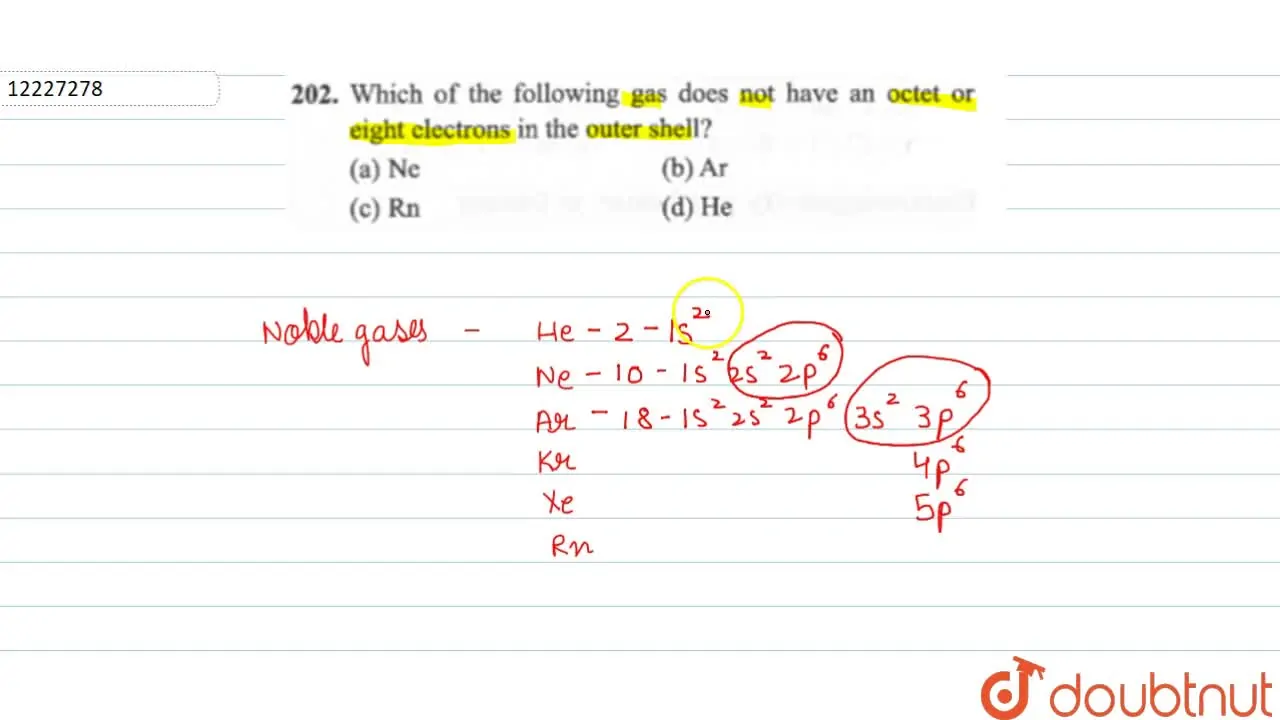 12227278
202. Which of the following gas does not have an octet or
eight electrons in the outer shell?
(a) Ne (b) Ar
(c) Rn (d) He
Noble gases - He - 2 - 1s²
Ne - 10 - 1s² 2s² 2p⁶
Ar - 18 - 1s² 2s² 2p⁶ 3s² 3p⁶
Kr 4p⁶
Xe 5p⁶
Rn
doubtnut